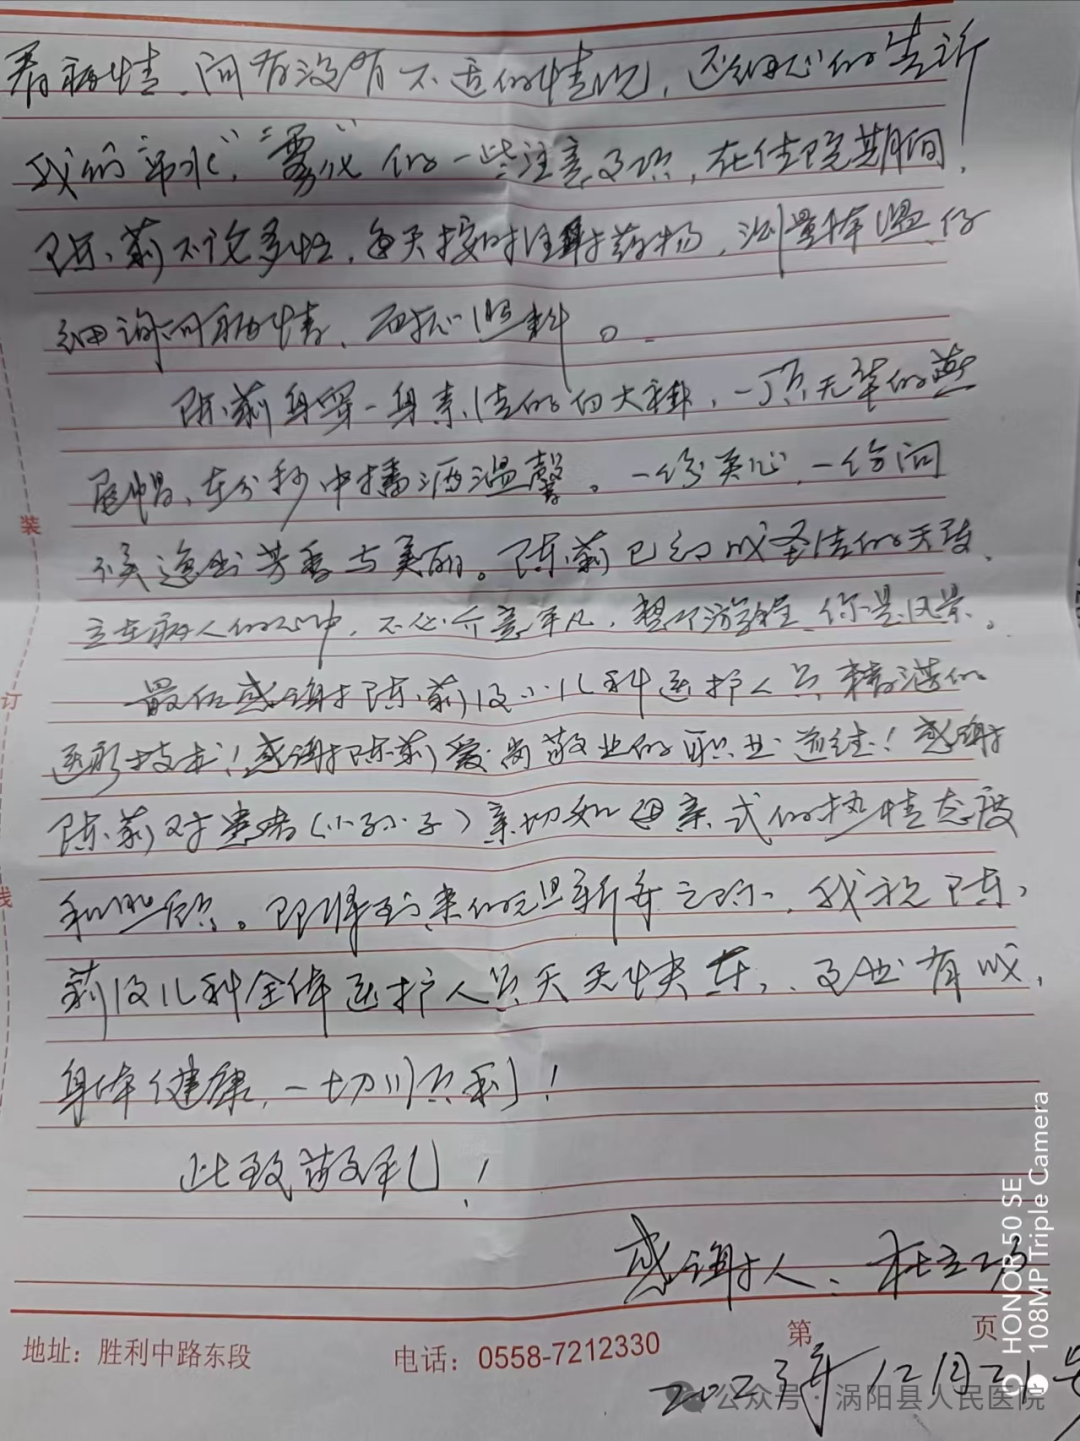 看病情、问有没有不适的情况，还细心的告诉
我的“吊水”，“雾化”的一些注意事项，在住院期间，
陈莉不论多忙，每天按时注射药物，测量体温仔
细询问病情、耐心照料。
陈莉身穿一身素洁的白大褂，一顶无华的燕
尾帽、在分秒中播洒温馨。一份关心，一份问
候逸出芳香与美丽。陈莉已幻成圣洁的天使、
立在病人的心中，不必介意平凡，整个游程、你是风景。
最后感谢陈莉及小儿科医护人员精湛的
医疗技术！感谢陈莉爱岗敬业的职业道德！感谢
陈莉对患者（小孙子）亲切如母亲式的热情态度
和照顾。即将到来的元旦新年之际，我祝陈
莉及儿科全体医护人员天天快乐、事业有成，
身体健康，一切顺利！
此致敬礼！
感谢人：杜立
装
订
线
地址：胜利中路东段
电话：0558-7212330
第 页
2023年12月21号
公众号·涡阳县人民医院
HONOR 50 SE
108MP Triple Camera